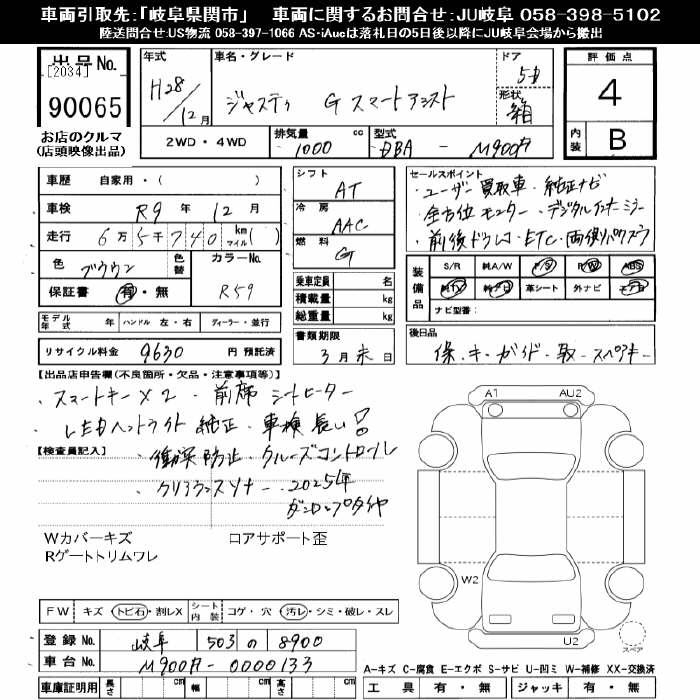 車両引取先:「岐阜県関市」 車両に関するお問合せ:JU岐阜 058-398-5102
陸送問合せ:US物流 058-397-1066 AS・iAucは落札日の5日後以降にJU岐阜会場から搬出
出品No.
[2034]
90065
お店のクルマ
(店頭映像出品)
年式
H28/12月
車名・グレード
ジャスティ G スマートアシスト
ドア
5D
形状
箱
2WD・4WD
排気量
1000 cc
型式
DBA - M900F
評価点
4
内装
B
車歴 自家用・( )
車検 R9年12月
走行 6万5千740 km マイル( )
色 ブラウン
色替
カラーNo.
R59
保証書 有・無
モデル年式 年 ハンドル 左・右 ディーラー・並行
リサイクル料金 9630 円預託済
シフト
AT
冷房
AAC
燃料
G
乗車定員 名
積載量 kg
総重量 kg
書類期限
3月末日
セールスポイント
・ユーザー買取車・純正ナビ
・全方位モニター・デジタルインナーミラー
・前後ドラレコ・ETC・両側パワスラ
装備品
S/R 純A/W P/S P/W ABS
純TV 純ナビ 革シート 外ナビ エアB
ナビ型番:
後日品
保・キ・ガイド・取・スペアキー
【出品店申告欄(不良箇所・欠品・注意事項等)】
・スマートキー×2・前席シートヒーター
・LEDヘッドライト 純正・車検長い!
【検査員記入】
・衝突防止・クルーズコントロール
・クリアランスソナー・2025年
ダンロップタイヤ
Wカバーキズ
コアサポート歪
Rゲートトリムワレ
A1
AU2
W2
U2
スペア
FW キズ・トビ石・割レX シート内装 コゲ・穴・汚レ・シミ・破レ・スレ
登録No. 岐阜 503 の 8900
車台No. M900F-0000133
車庫証明用 長さ cm 幅 cm 高さ cm
A-キズ C-腐食 E-エクボ S-サビ U-凹ミ W-補修 XX-交換済
工具 有・無 ジャッキ 有・無